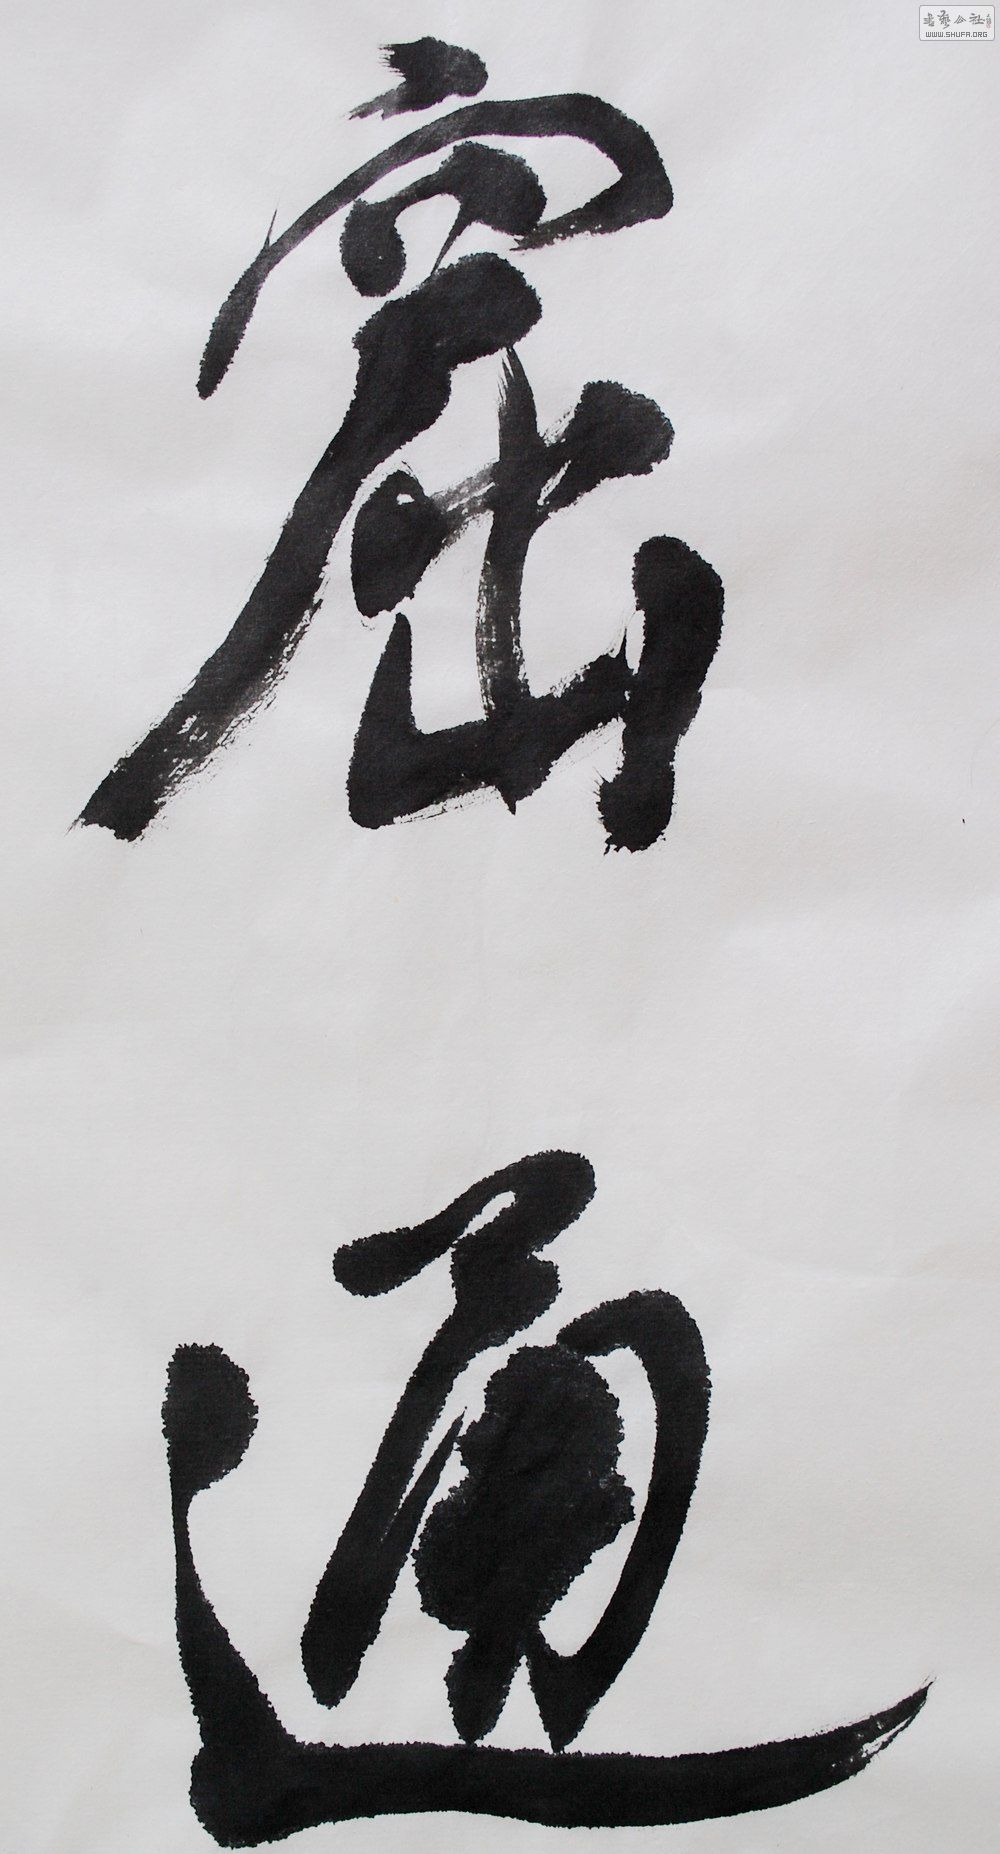 窟
通
書藝公社
WWW.SHUFA.ORG